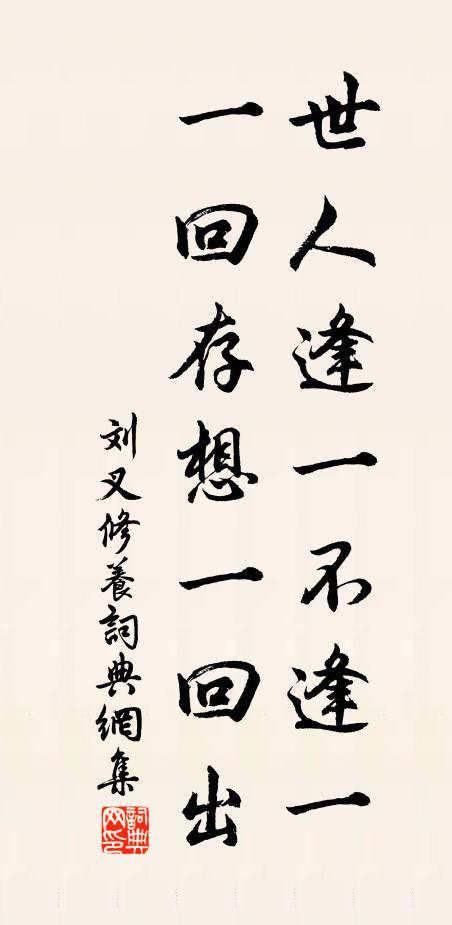 世人逢一不逢一
一回存想一回出
刘叉修養詞典網集
詞典
网印